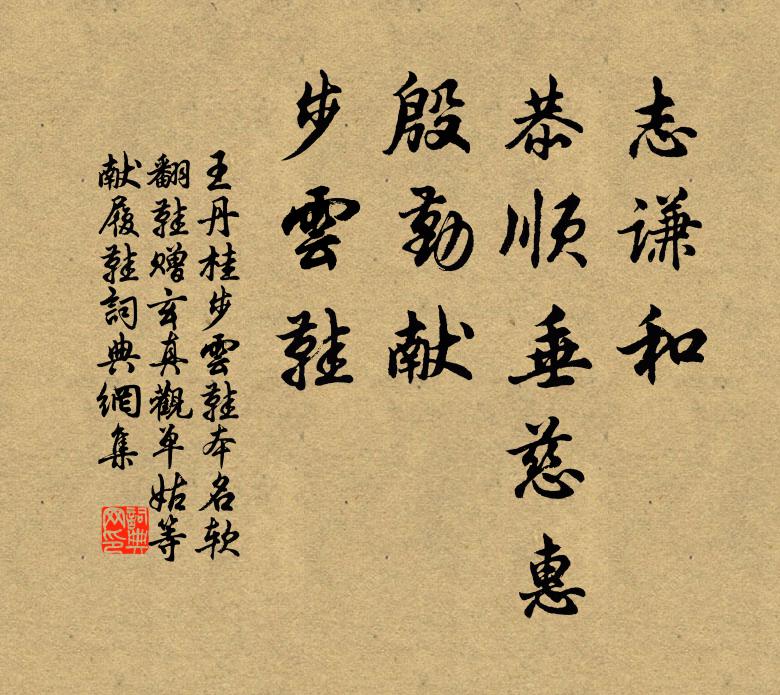 志谦和
恭顺垂慈惠
殷勤献
步雲鞋
王丹桂步雲鞋本名软
翻鞋赠玄真觀单姑等
献履鞋詞典網集
詞典网印